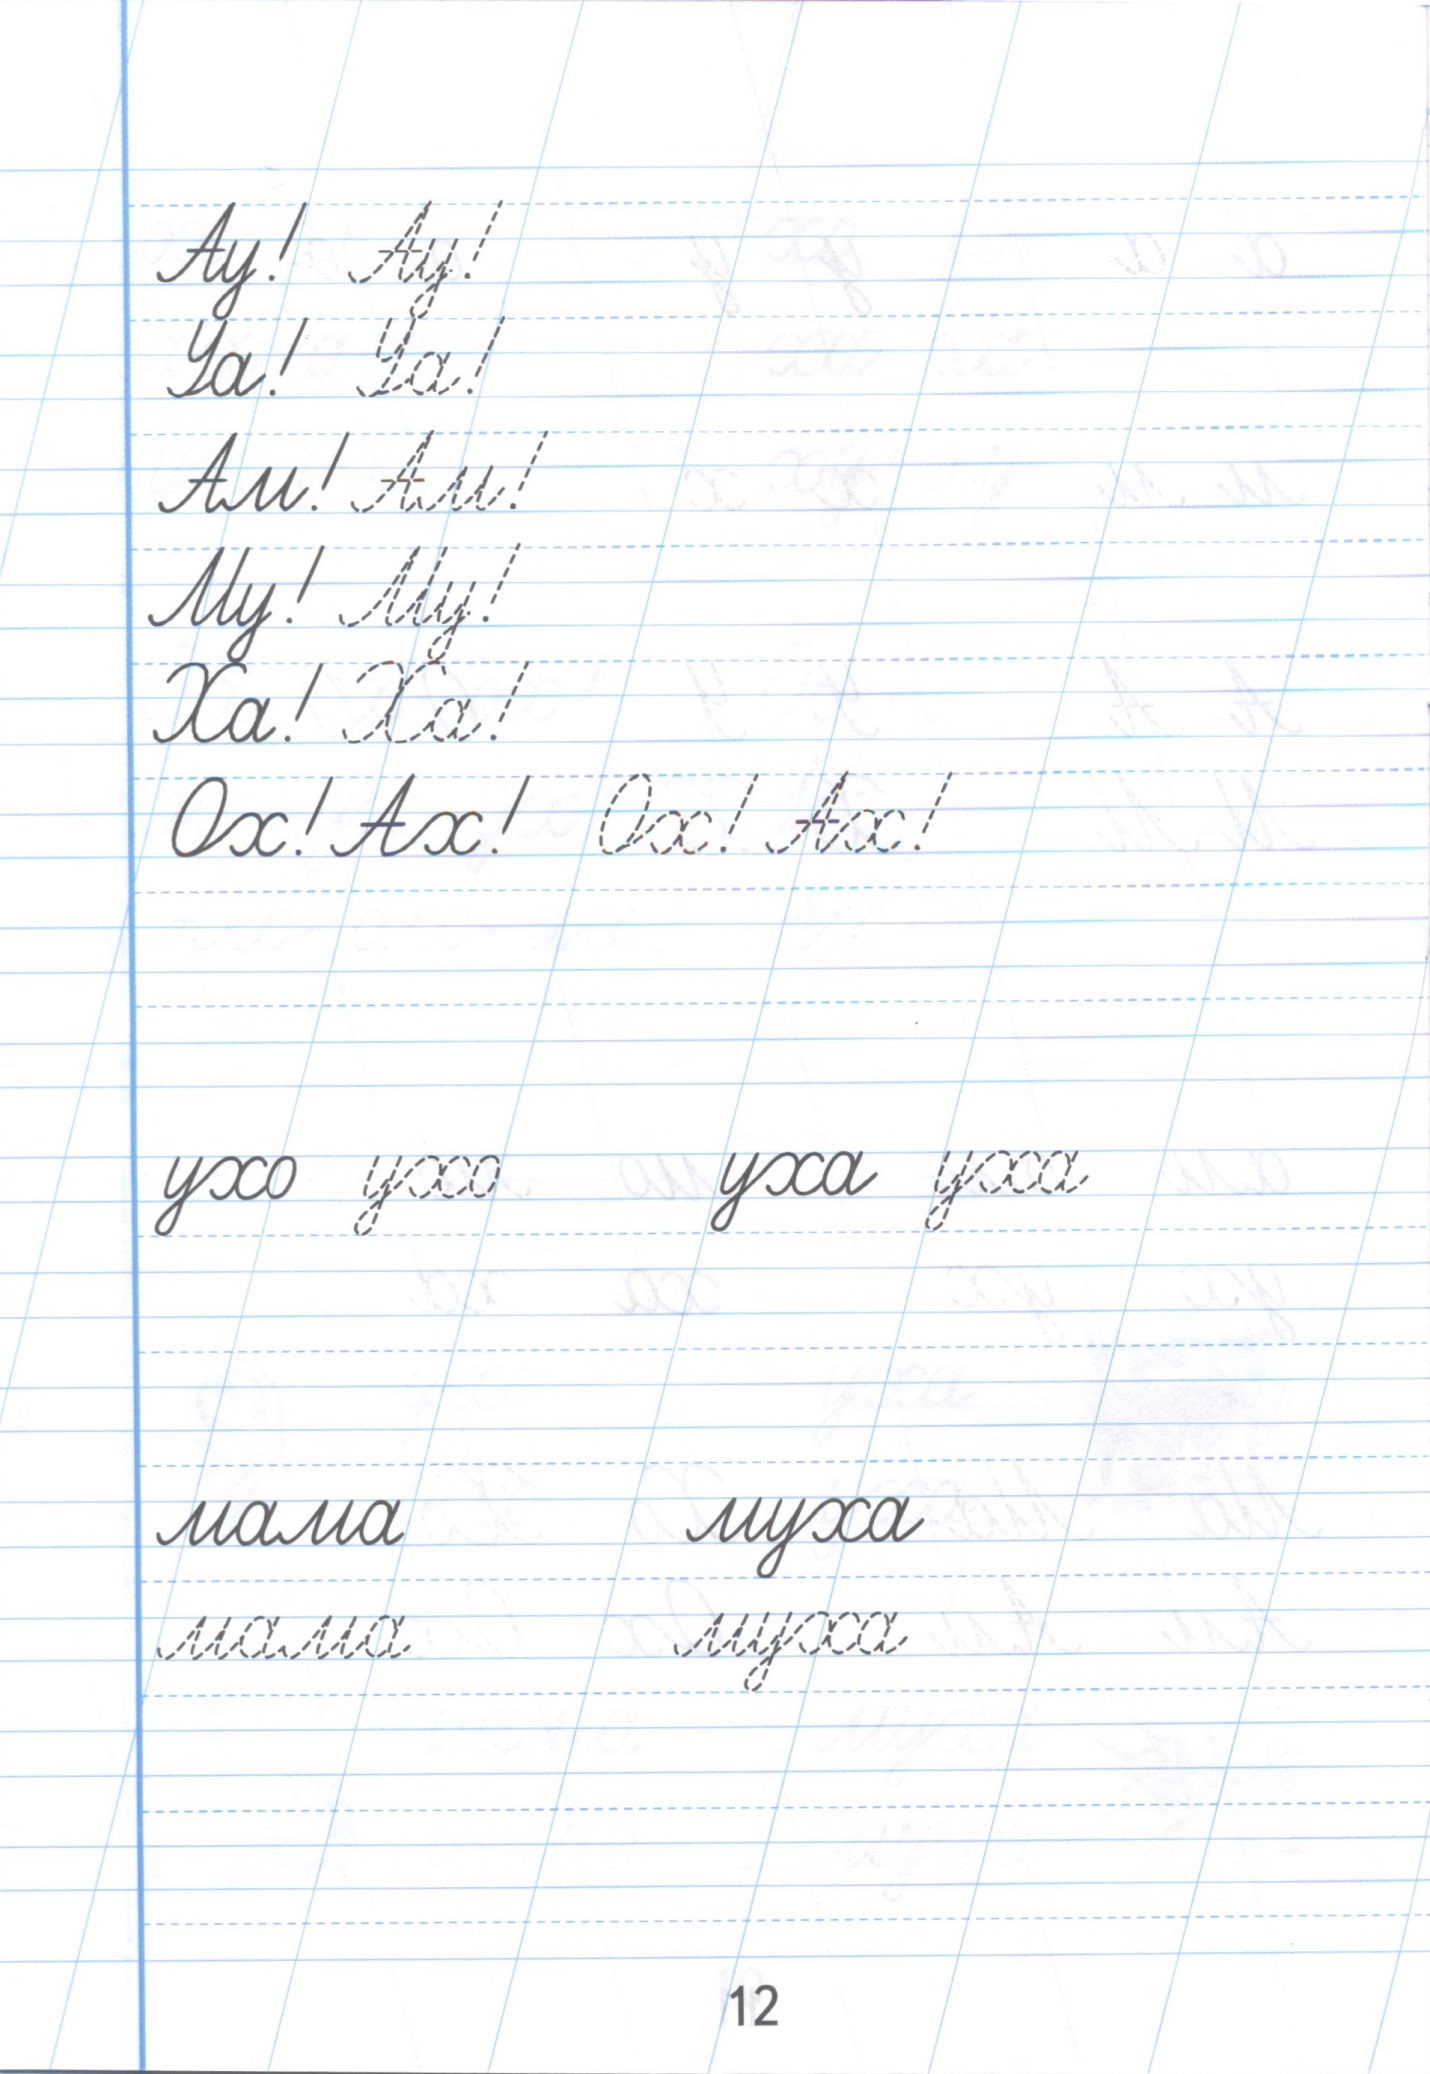 Ау! Ау!
Уа! Уа!
Ам! Ам!
Му! Му!
Ха! Ха!
Ох! Ах! Ох! Ах!
ухо ухо уха уха
мама муха
мама муха
12